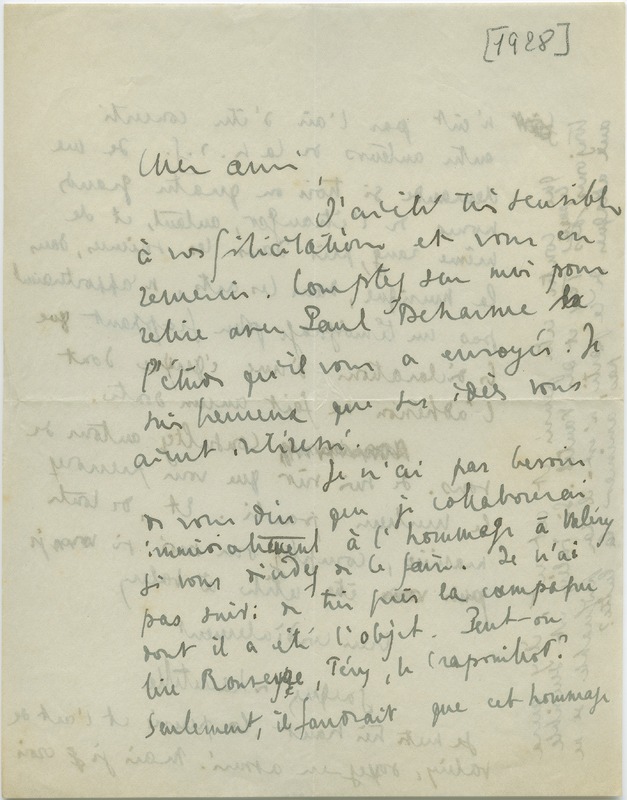 [1928]
Cher ami,
J'ai été très sensible
à vos félicitations et vous en
remercie. Comptez sur moi pour
relire avec Paul Deharme
l'étude qu'il vous a envoyée. Je
suis heureux que ses idées vous
aient intéressé.
Je n'ai pas besoin
de vous dire que je collaborerai
immédiatement à l'hommage à Valéry
si vous décidez de le faire. Je n'ai
pas suivi de très près la campagne
dont il a été l'objet. Peut-on
lire Rouveyre, Téry, le Crapouillot?
Seulement, il faudrait que cet hommage